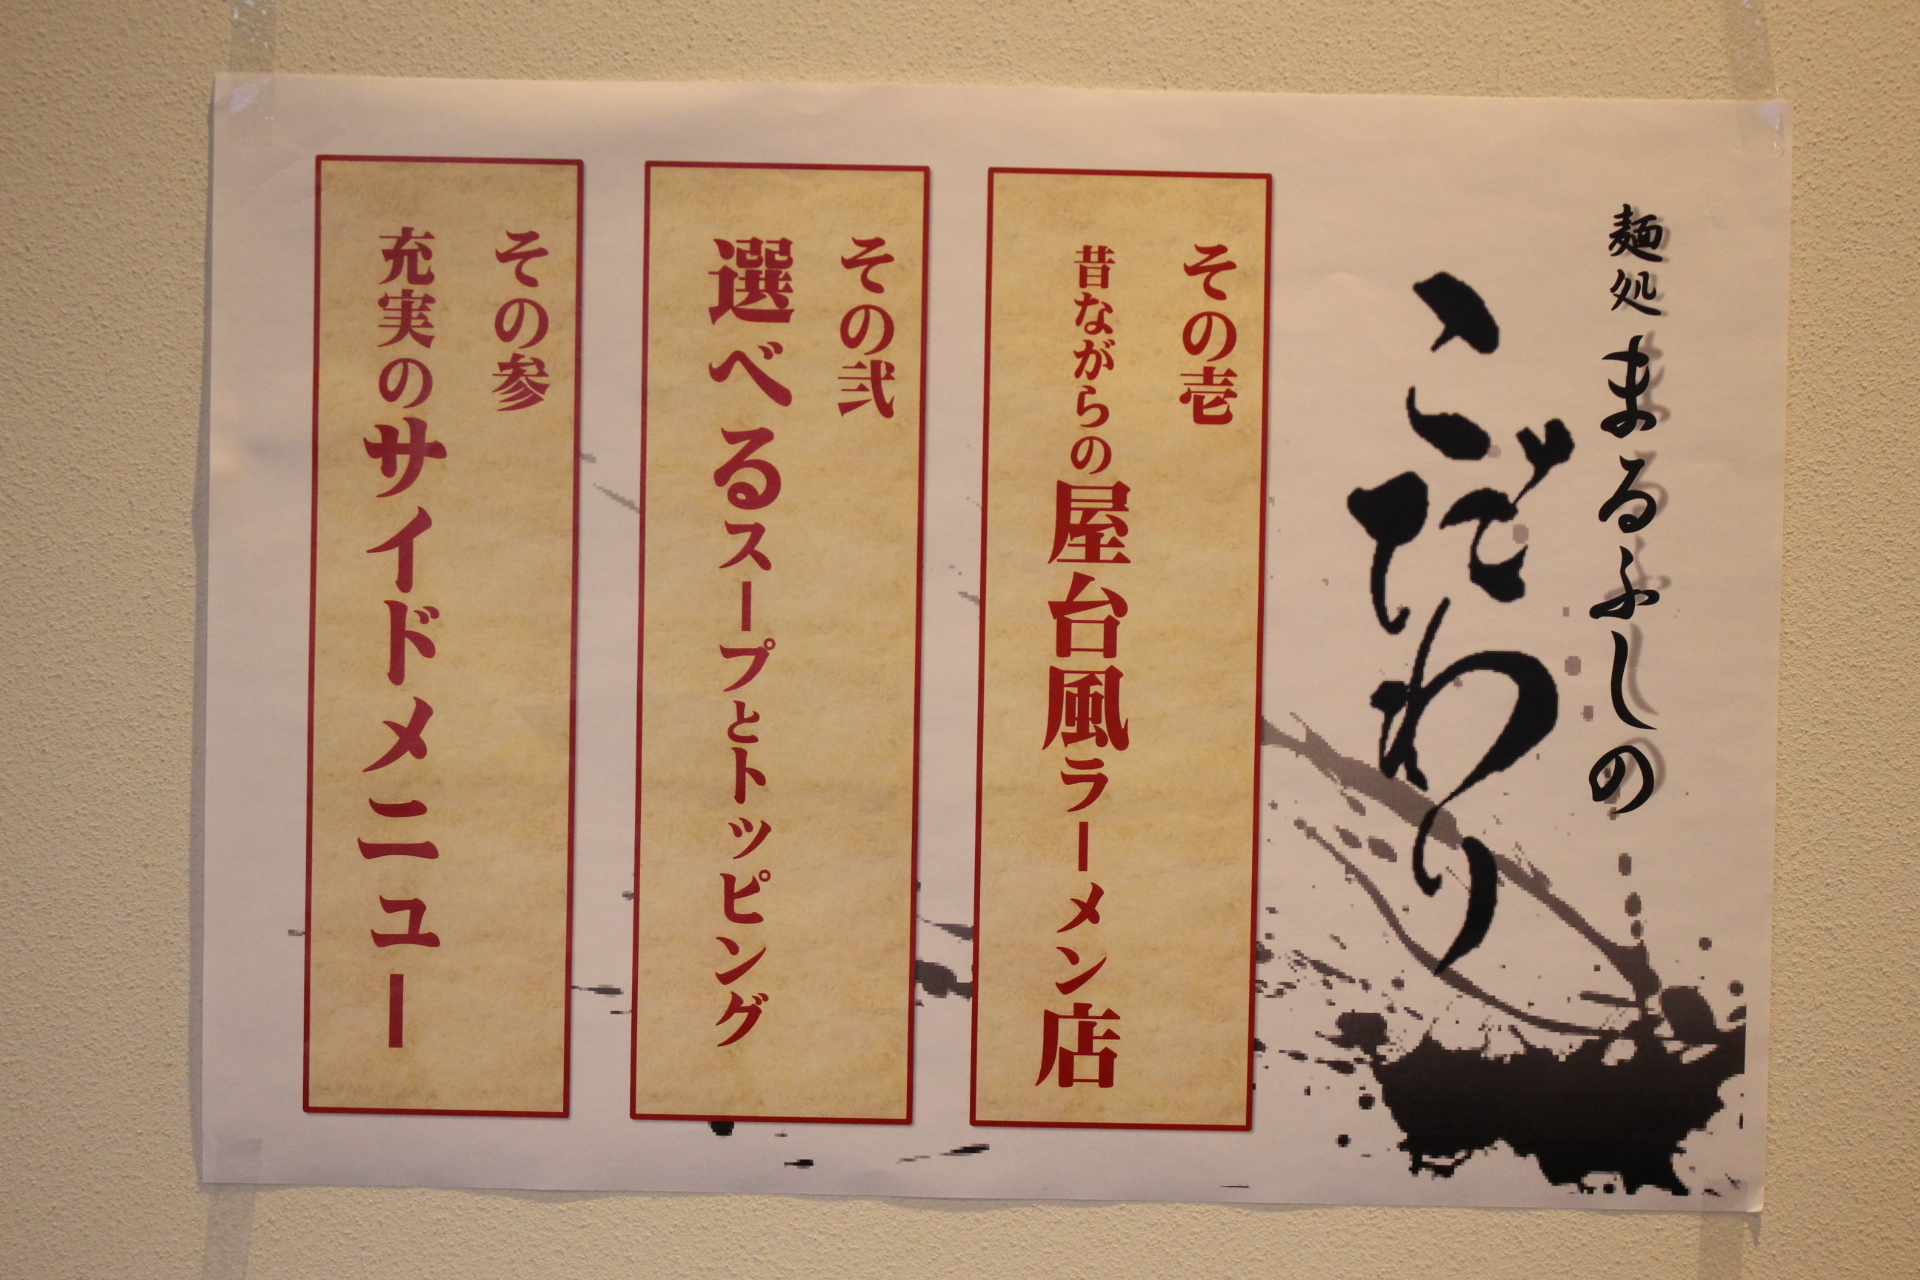 麺処 まるふしの
こだわり
その壱
昔ながらの屋台風ラーメン店
その弐
選べるスープとトッピング
その参
充実のサイドメニュー